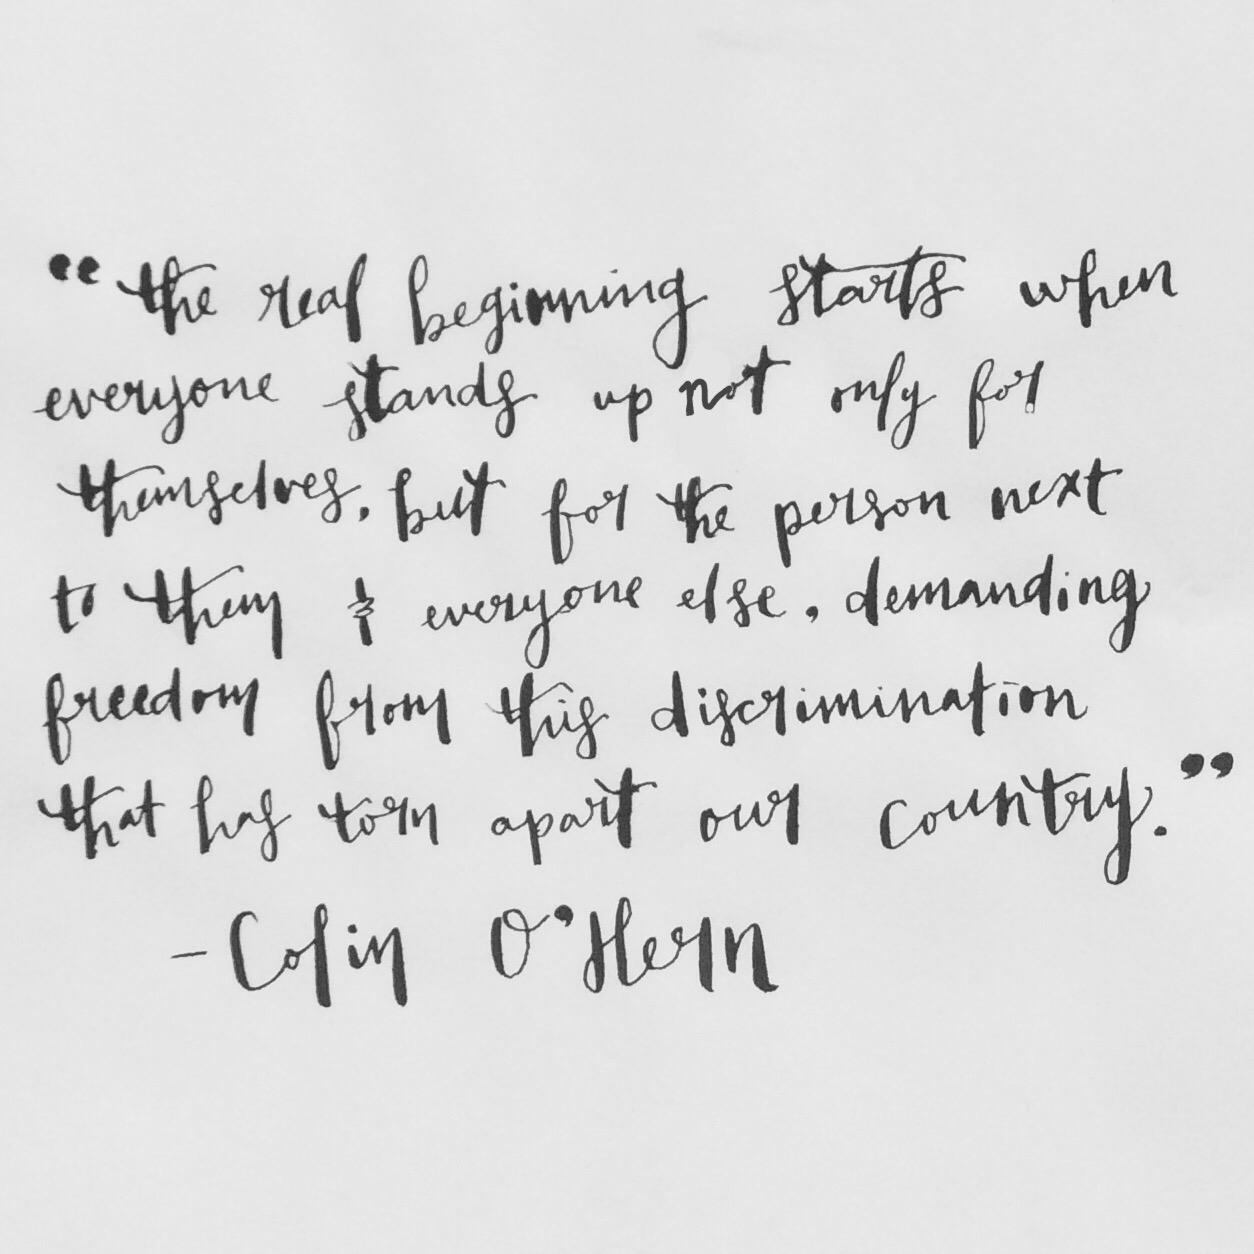 “the real beginning starts when
everyone stands up not only for
themselves, but for the person next
to them & everyone else, demanding
freedom from this discrimination
that has torn apart our country.”
- Colin O’Hern